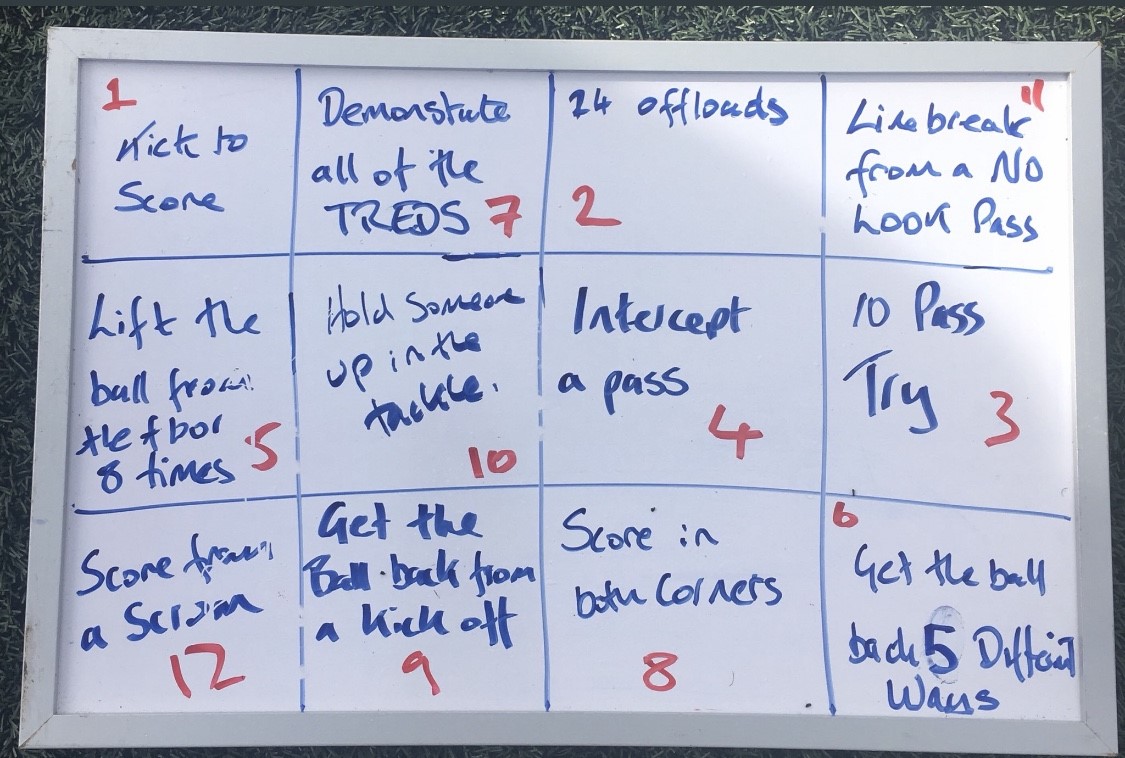 1
Kick to
Score
Demonstrate
all of the
TREDS 7
24 offloads
2
11
Linebreak
from a NO
LOOK Pass
Lift the
ball from
the floor
8 times 5
Hold Someone
up in the
tackle.
10
Intercept
a pass
4
10 Pass
Try 3
Score from
a Scrum
12
Get the
Ball back from
a Kick off
9
Score in
both Corners
8
6
Get the ball
back 5 Different
Ways